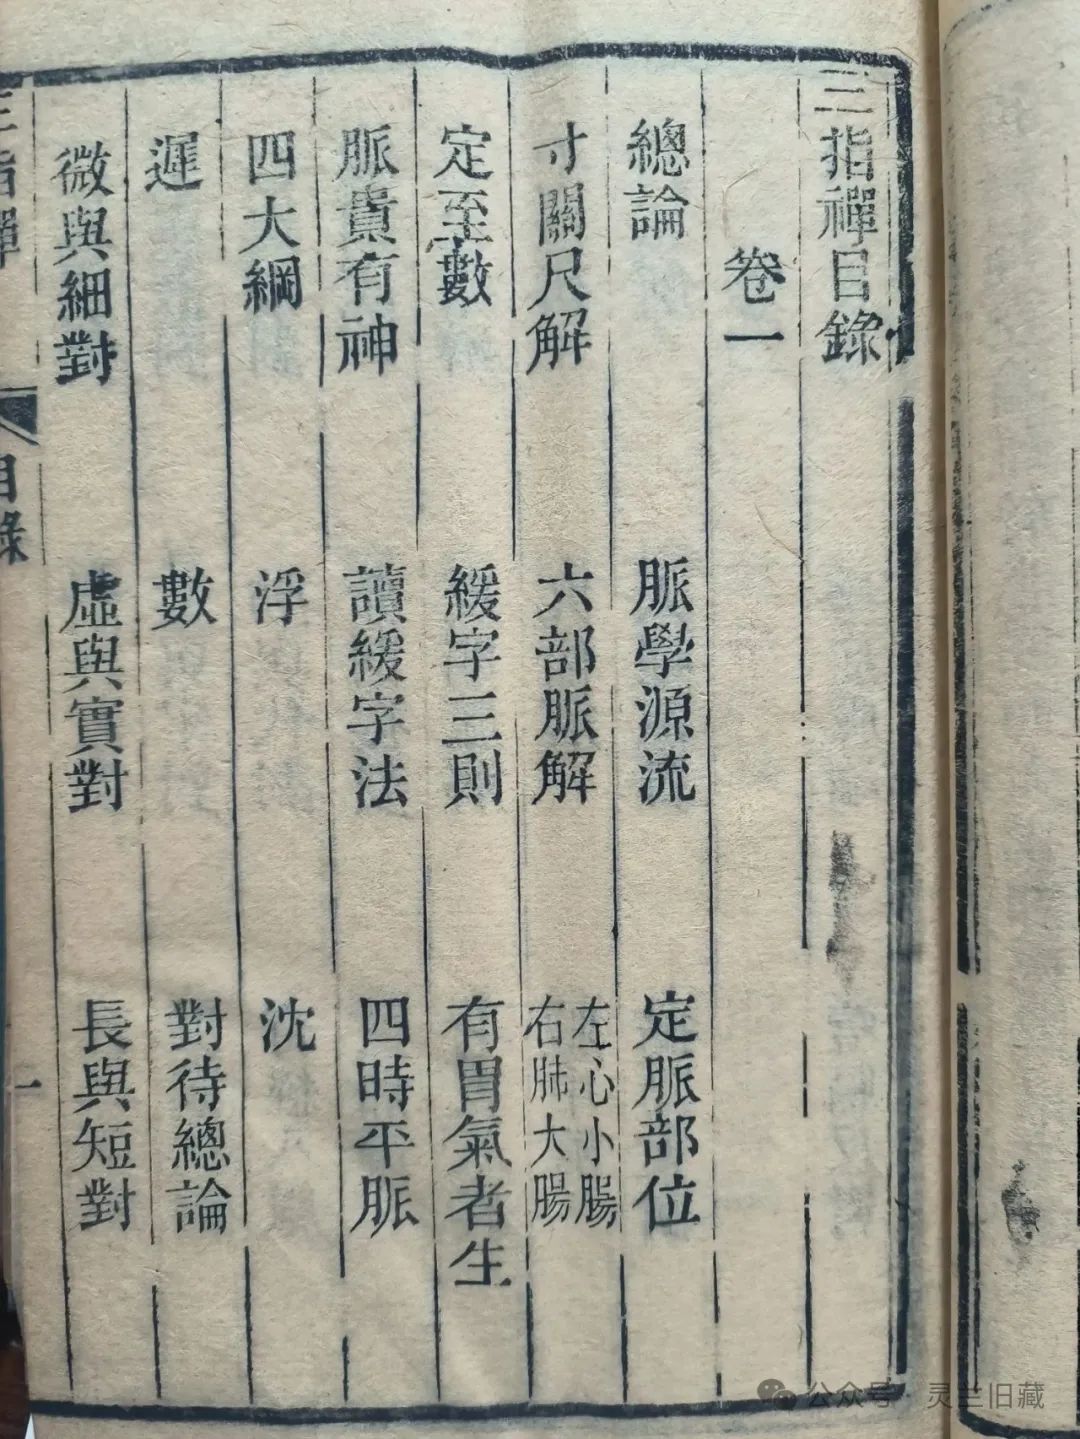 三指禪目錄
卷一
總論 脈學源流 定脈部位
寸關尺解 六部脈解 左心小腸 右肺大腸
定至數 緩字三則 有胃氣者生
脈貴有神 讀緩字法 四時平脈
四大綱 浮 沈
遲 數 對待總論
微與細對 虛與實對 長與短對
三指禪 目錄 一
公众号 · 灵兰旧藏